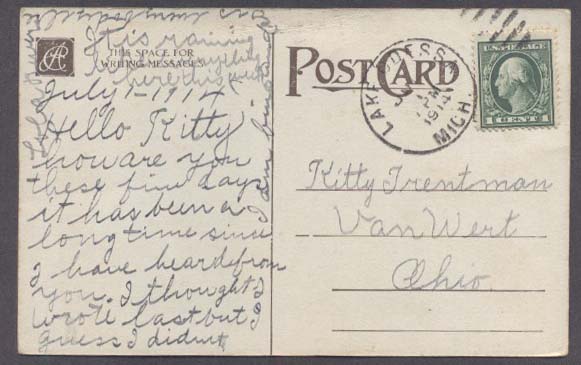 It is raining
here this
THIS SPACE FOR
WRITING MESSAGES
July 1-1914
Hello Kitty
how are you
these fine days
it has been a
long time since
I have heard from
you. I thought I
wrote last but I
guess I didnt
POST CARD
LAKE ODESSA
MICH
1914
U.S. POSTAGE
1 CENT 1
Kitty Trentman
Van Wert
Ohio.